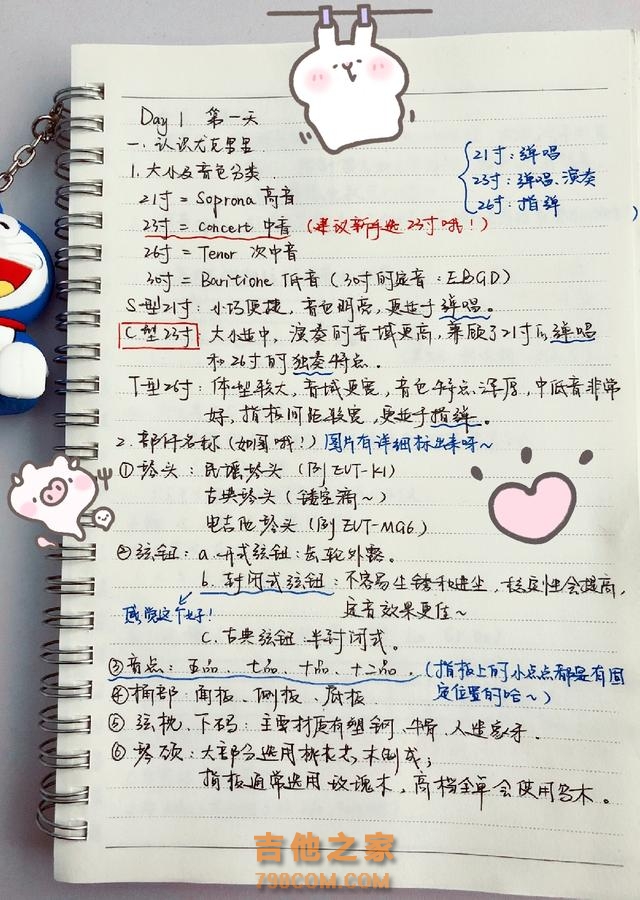 Day 1 第一天
一. 认识尤克里里
1. 大小及音色分类
21寸 = Soprona 高音
23寸 = Concert 中音 (建议新手选23寸哦!)
26寸 = Tenor 次中音
30寸 = Baritione 低音 (30寸的定音: EBGD)
21寸: 弹唱
23寸: 弹唱、演奏
26寸: 指弹
S-型21寸: 小巧便捷, 音色明亮, 更适于弹唱。
C型23寸: 大小适中, 演奏的音域更高, 兼顾了21寸的弹唱
和26寸的独奏特点。
T型26寸: 体型较大, 音域更宽, 音色特点浑厚, 中低音非常
好, 指板间距较宽, 更适于指弹。
2. 部件名称 (如图哦!) 图片有详细标出来呀~
① 琴头: 民谣琴头 (例 EUT-K1)
古典琴头 (镂空滴~)
电吉他琴头 (例 EUT-MG6)
② 弦钮: a. 开式弦钮: 齿轮外露。
b. 封闭式弦钮: 不容易生锈和进尘, 稳定性会提高,
定音效果更佳~
感觉这个好!
C. 古典弦钮: 半封闭式。
③ 音点: 五品、七品、十品、十二品。(指板上的小点点都是有固
定位置的哈~)
④ 桶部: 面板、侧板、底板
⑤ 弦枕、下码: 主要材质有塑钢、牛骨、人造象牙.
⑥ 琴颈: 大部分选用桃花芯木制成;
指板通常选用玫瑰木, 高档全单会使用乌木。
吉他之家
798COM.COM